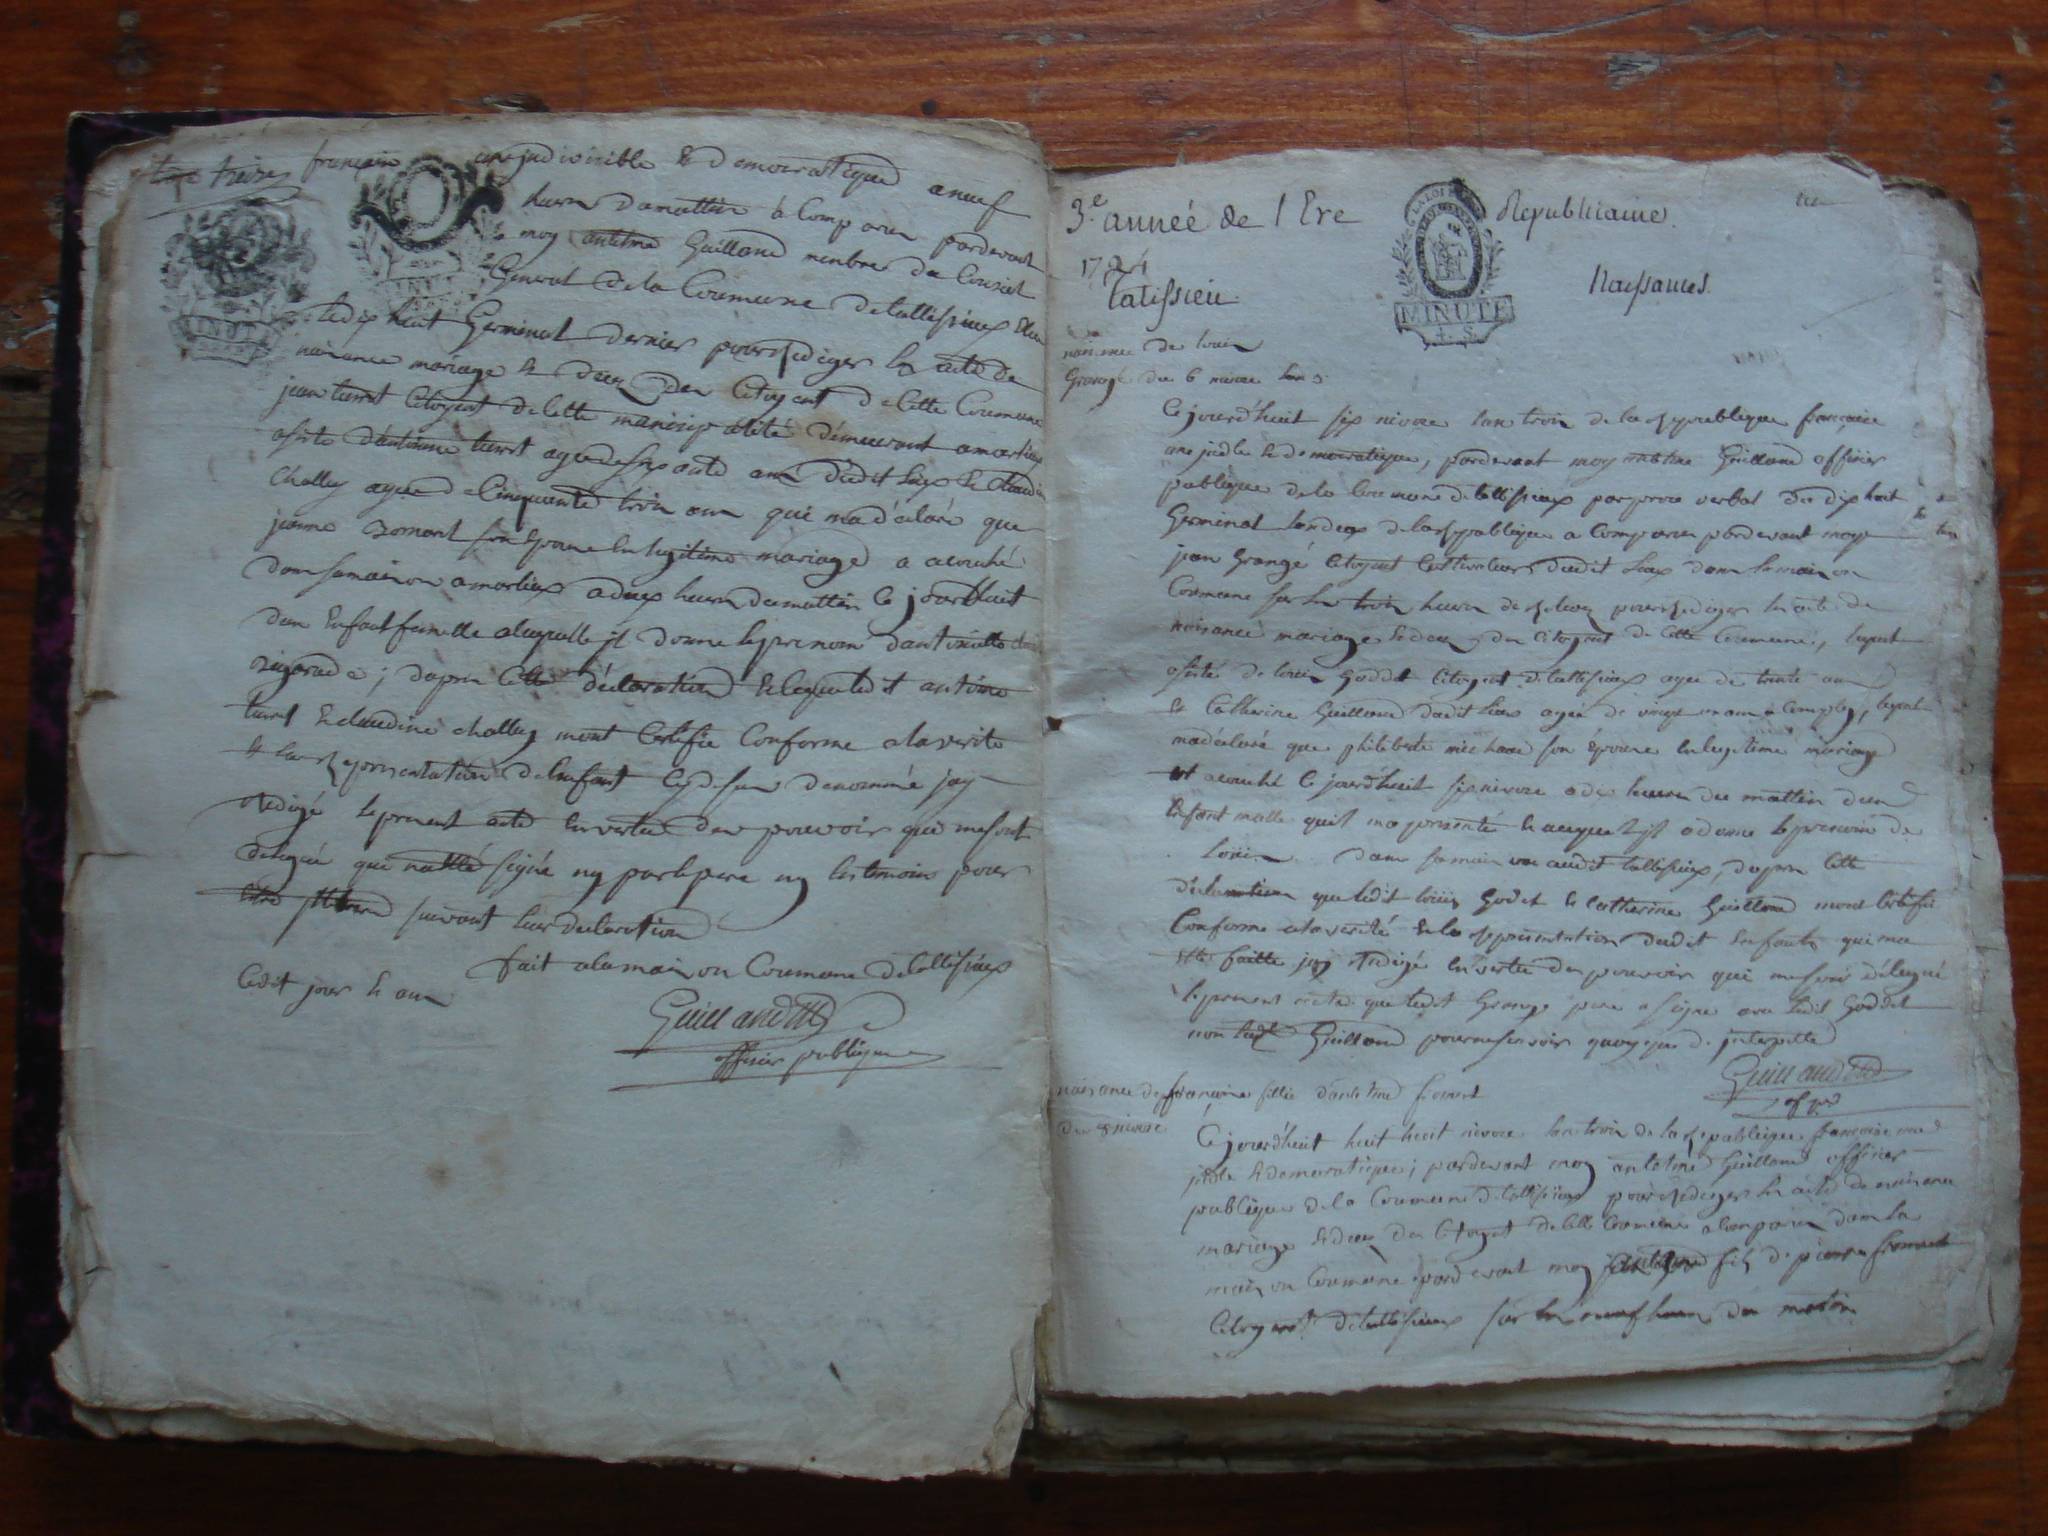 françoise une jndivisible & democratique a neuf
heures du mattin à Comparu pardevant
moy antelme Guilland membre du Conseil
General de la Commune de tallissieux
le dix huit Germinal dernier pour rediger les acte de
naisance mariage & deces des Citoyent de Cette Commune
jean turrel Citoyent de Cette municipalité demeurant a
asisté d'antoine turrel agé de soixante ans dudit lieux & Claudine
Challey agée de Cinquante trois ans qui ma déclaré que
jeanne son Epouse en legitime mariage a acouché
dans sa maison a a deux heures du mattin Ce jourdhuit
dun Enfant femelle alaquelle jl donne le prenom dantoinette
; dapres Cette déclaration & lequel dit antoine
turrel & claudine challey mont Certifié Conforme a la verité
& la representation de lenfant Cy desus denommé jay
redigé le present acte En vertu des pouvoirs qui me sont
delegué que signé ny par le pere ny les temoins pour
suivant leur declaration
fait a la maison Commune de tallisieux
Ledit jour & an
Guilland
officier publique
MINUTE
3.e année de l'Ere Republicaine.
1794
Talissieu.
Naissances.
LA LOI
MINUTE
naisance de louis
Grangé du 6 nivose lan 3
Ce jourd'huit six nivose lan trois de la republique françoise
une jndle & democratique, pardevant moy antelme Guilland officier
publique de la Commune de tallissieux par proces verbal du dix huit
Germinal lan deux de la republique a Comparu pardevant moy
jean Grangé Citoyent Cultivateur dudit lieux dans la maison
Commune sur les trois heures pour rediger les acte de
naisance mariage & deces des Citoyent de Cette Commune, lequel
asisté de louis Goddet Citoyent de tallisieux agé de trente ans
& Catherine Guilland dudit lieux agée de vingt un ans Complet, lequel
ma déclaré que philiberte michaud son épouse en legitime mariage
est acouché Ce jourd'huit six nivose a dix heures du mattin dun
Enfant malle quil ma presenté & auquel jl a donné le prenom de
Louis dans sa maison audit tallisieux, dapres Cette
déclaration que ledit louis Godet & Catherine Guilland mont Certifié
Conforme a la verité & la representation dudit Enfant qui ma
eté faitte jay redigé En vertu des pouvoirs qui me sont délegué
le present acte que ledit Grangé pere a signé avec ledit Goddet
non ladte Guilland pour ne savoir quoyque de jnterpellé
Guilland
naisance de françoise fillie dantelme
du 8 nivose
Ce jourd'huit huit huit nivose lan trois de la republique françoise une
jndle & democratique; pardevant moy antelme Guilland officier
publique de la Commune de tallisieux pour rediger les acte de naisance
mariage & deces des Citoyent de Cette Commune a Comparu dans la
maison Commune pardevant moy fils de pierre
Citoyent de tallisieux sur les neuf heures du matin